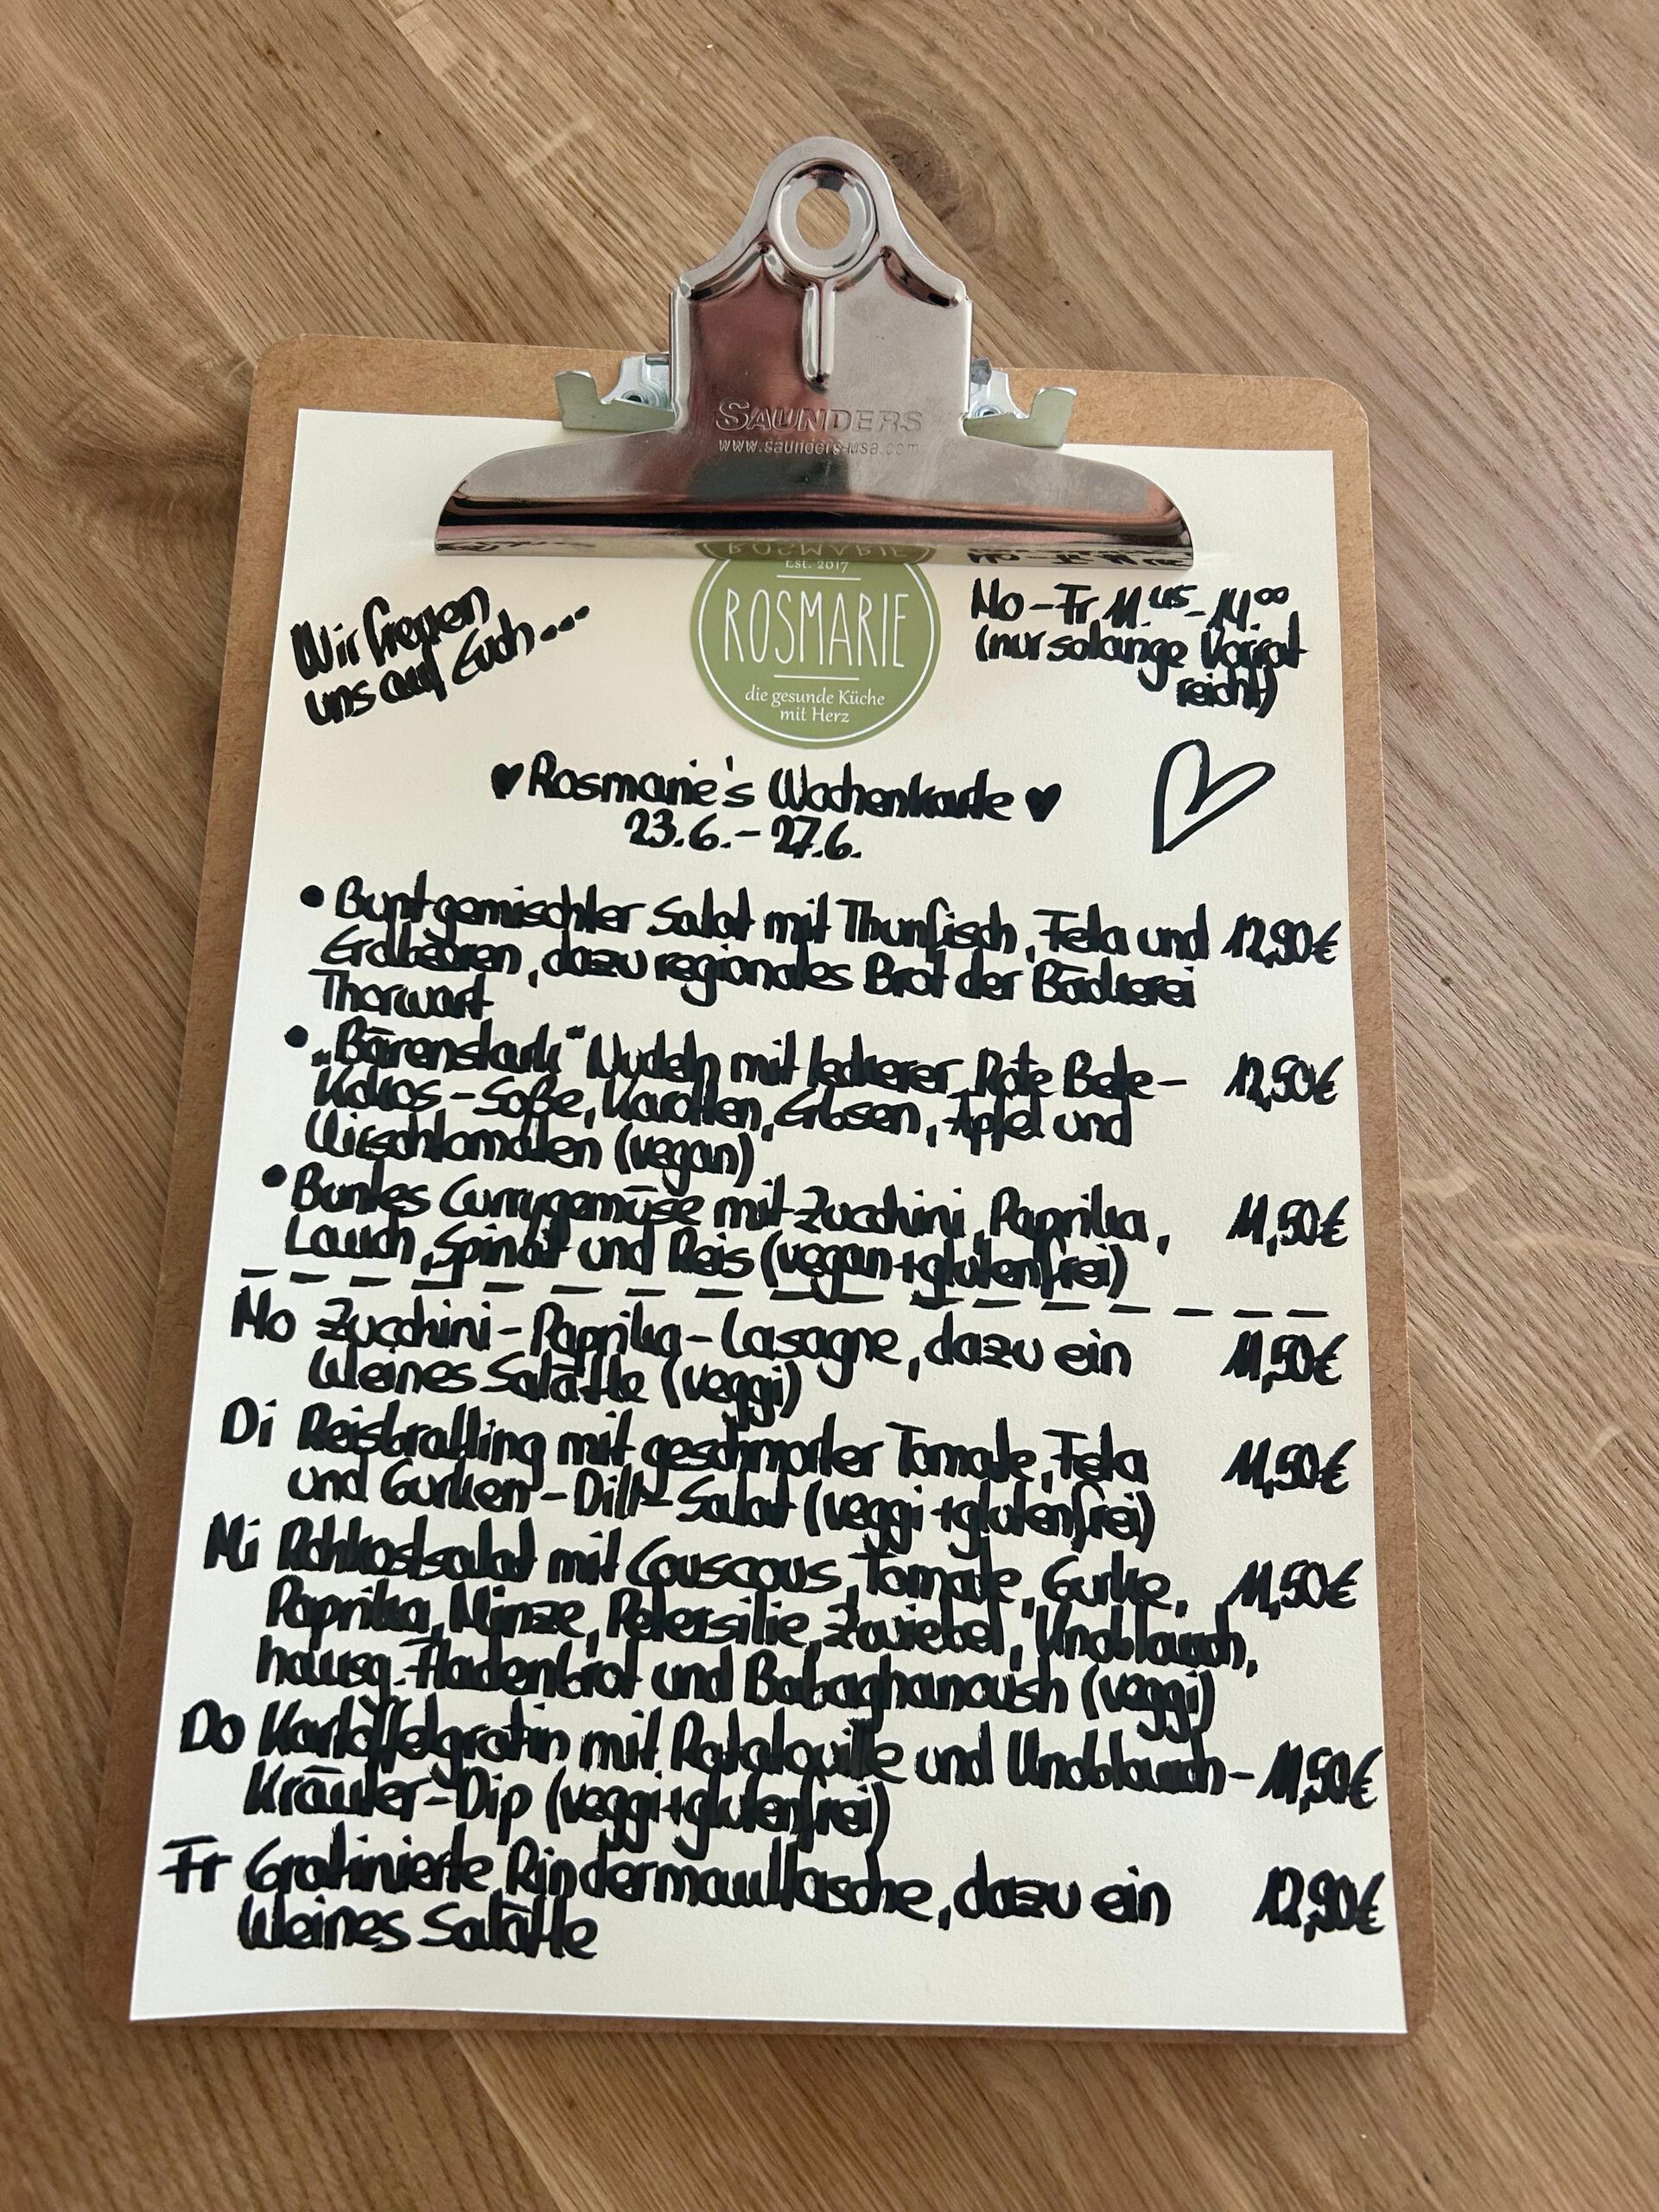 SAUNDERS
www.saunders-usa.com
Est. 2017
ROSMARIE
die gesunde Küche
mit Herz
Wir freuen
uns auf Euch...
Mo-Fr 11.45-14.00
(nur solange Vorrat
reicht)
♥Rosmarie's Wochenkarte♥
23.6.-27.6.
• Buntgemischter Salat mit Thunfisch, Feta und 12,90€
Erdbeeren, dazu regionales Brot der Bäckerei
Thorwart
• „Bärenstark" Nudeln mit leckerer Rote Bete- 12,50€
Kokos-Soße, Karotten, Erbsen, Apfel und
Kirschtomaten (vegan)
• Buntes Currygemüse mit Zucchini, Paprika, 11,50€
Lauch, Spinat und Reis (vegan+glutenfrei)
Mo Zucchini-Paprika-Lasagne, dazu ein 11,50€
kleines Salätle (veggi)
Di Reisbratling mit geschmorter Tomate, Feta 11,50€
und Gurken-Dill-Salat (veggi+glutenfrei)
Mi Rohkostsalat mit Couscous, Tomate, Gurke, 11,50€
Paprika, Minze, Petersilie, Zwiebel, Knoblauch,
hausg. Fladenbrot und Babaghanoush (veggi)
Do Kartoffelgratin mit Ratatouille und Knoblauch- 11,50€
Kräuter-Dip (veggi+glutenfrei)
Fr Gratinierte Rindermaultasche, dazu ein 12,90€
kleines Salätle